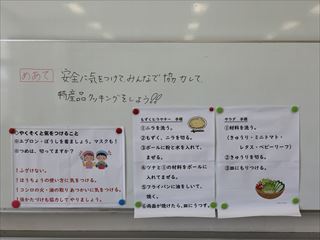 めあて 安全に気をつけて、みんなで協力して、
特産品クッキングをしよう!!
○やくそくと気をつけること
※エプロン・ぼうしを着ましょう。マスクも!
※つめは、切ってますか?
!ふざけない。
!ほうちょうの使い方に気をつける。
!コンロの火・油の取りあつかいに気をつける。
!後かたづけも協力してやりましょう。
もずくヒラヤチー 手順
①ニラを洗う。
②もずく、ニラを切る。
③ボールに粉と水を入れて、
まぜる。
④ツナと②の材料をボールに
入れてまぜる。
⑤フライパンに油をしいて、
焼く。
⑥両面が焼けたら、皿にうつす。
サラダ 手順
①材料を洗う。
(きゅうり・ミニトマト・
レタス・ベビーリーフ)
②きゅうりを切る。
③皿にもりつける。